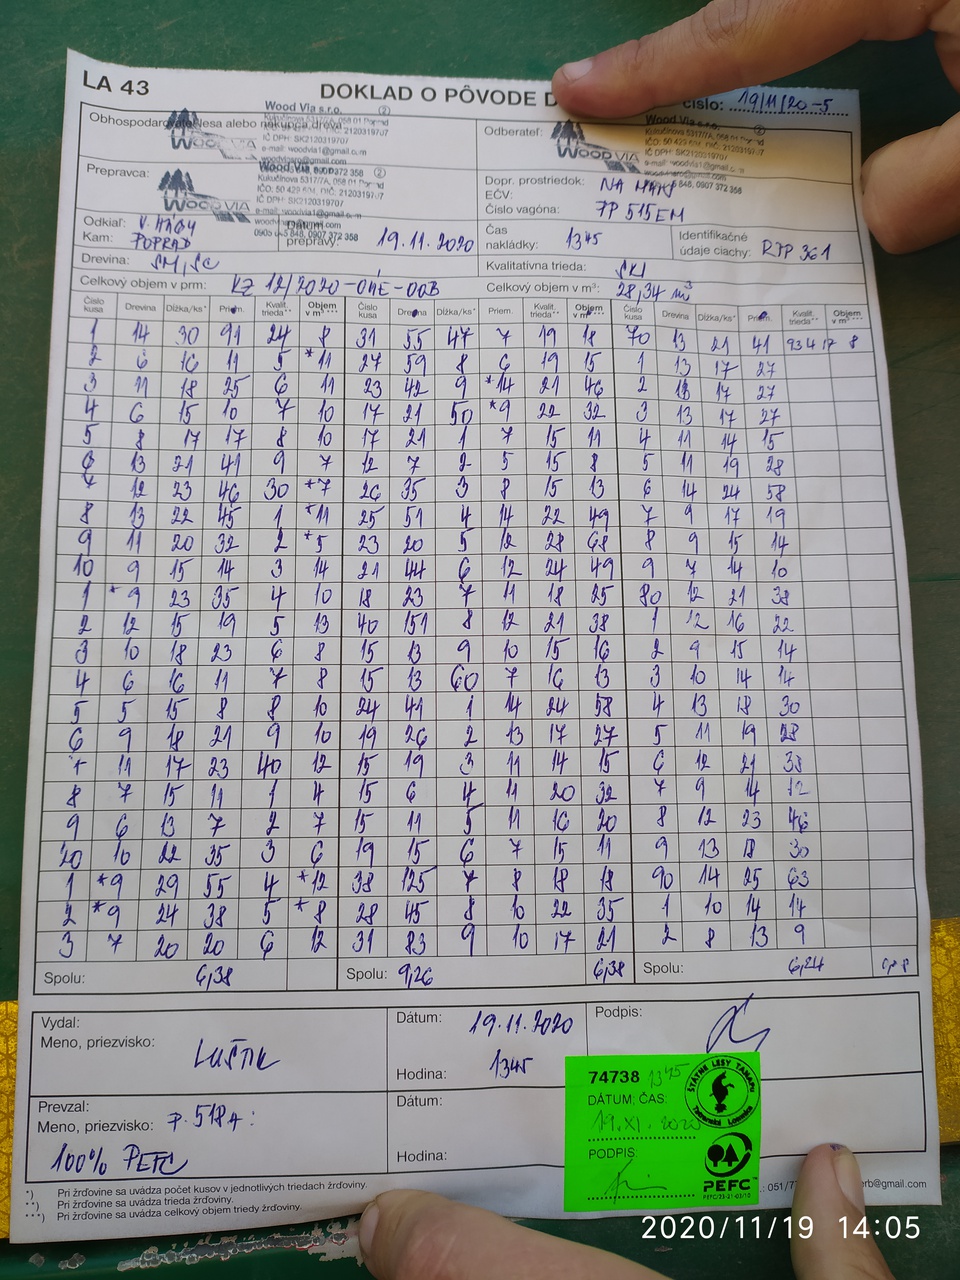 LA 43
DOKLAD O PÔVODE D
číslo: 19/11/20-5
Obhospodarovateľ lesa alebo nákupca dreva
Wood Via s.r.o.
Kukučínova 5317/7A, 058 01
IČ DPH: SK2120319707
e-mail: woodvia1@gmail.com
WOOD VIA
Odberateľ:
Wood Via s.r.o.
Kukučínova 5317/7A, 058 01
IČ DPH: SK2120319707
e-mail: woodvia1@gmail.com
0907 372 358
WOOD VIA
Prepravca:
Wood Via s.r.o.
Kukučínova 5317/7A, 058 01
IČ DPH: SK2120319707
e-mail: woodvia1@gmail.com
0907 372 358
WOOD VIA
Dopr. prostriedok:
EČV:
Číslo vagóna: PP 515EM
Odkiaľ: V. HÁGY
Kam: POPRAD
Dátum prepravy: 19.11.2020
Čas nakládky: 1345
Identifikačné údaje ciachy: RTP 361
Drevina: SM, SC
Kvalitatívna trieda:
Celkový objem v prm: KZ 12/2020-OHE-OOB
Celkový objem v m³: 28,34 m³
Číslo kusa Drevina Dĺžka/ks* Priem. Kvalit. trieda** Objem v m³*** Číslo kusa Drevina Dĺžka/ks* Priem. Kvalit. trieda** Objem v m³*** Číslo kusa Drevina Dĺžka/ks* Priem. Kvalit. trieda** Objem v m³***
1 14 30 91 24 8 31 55 47 7 19 18 70 13 21 41 93 4 17 8
2 6 16 11 5 *11 27 59 8 6 19 15 1 13 17 27
3 11 18 25 6 11 23 42 9 *14 21 46 2 13 17 27
4 6 15 10 7 10 17 21 50 *9 22 32 3 13 17 27
5 8 17 17 8 10 17 21 1 7 15 11 4 11 14 15
6 13 21 41 9 7 12 7 2 5 15 8 5 11 19 28
7 12 23 46 30 *7 26 35 3 8 15 13 6 14 24 58
8 13 22 45 1 *11 25 51 4 14 22 49 7 9 17 19
9 11 20 32 2 *5 23 20 5 12 28 68 8 9 15 14
10 9 15 14 3 14 21 44 6 12 24 49 9 7 14 10
1 *9 23 35 4 10 18 23 7 11 18 25 80 12 21 38
2 12 15 19 5 13 40 151 8 12 21 38 1 12 16 22
3 10 18 23 6 8 15 13 9 10 15 16 2 9 15 14
4 6 16 11 7 8 15 13 60 7 16 13 3 10 14 14
5 5 15 8 8 10 24 41 1 14 24 58 4 13 18 30
6 9 18 21 9 10 19 26 2 13 17 27 5 11 19 28
7 11 17 23 40 12 15 19 3 11 14 15 6 12 21 38
8 7 15 11 1 4 15 6 4 11 20 32 7 9 14 12
9 6 13 7 2 7 15 11 5 11 16 20 8 12 23 46
20 10 22 35 3 6 19 15 6 7 15 11 9 13 18 30
1 *9 29 55 4 *12 38 125 7 8 18 18 90 14 25 63
2 *9 24 38 5 *8 28 45 8 10 22 35 1 10 14 14
3 7 20 20 6 12 31 83 9 10 17 21 2 8 13 9
Spolu: 6,38 Spolu: 9,26 6,38 Spolu: 6,24
Vydal:
Meno, priezvisko: LUŠTIK
Dátum: 19.11.2020
Hodina: 1345
Podpis:
Prevzal:
Meno, priezvisko:
100% PEFC
Dátum:
Hodina:
74738 1345
DÁTUM, ČAS:
19.XI.2020
PODPIS:
ŠTÁTNE LESY TANAPu
Tatranská Lomnica
PEFC
PEFC/23-21-03/10
*) Pri žrďovine sa uvádza počet kusov v jednotlivých triedach žrďoviny.
**) Pri žrďovine sa uvádza trieda žrďoviny.
***) Pri žrďovine sa uvádza celkový objem triedy žrďoviny.
erb@gmail.com
2020/11/19 14:05